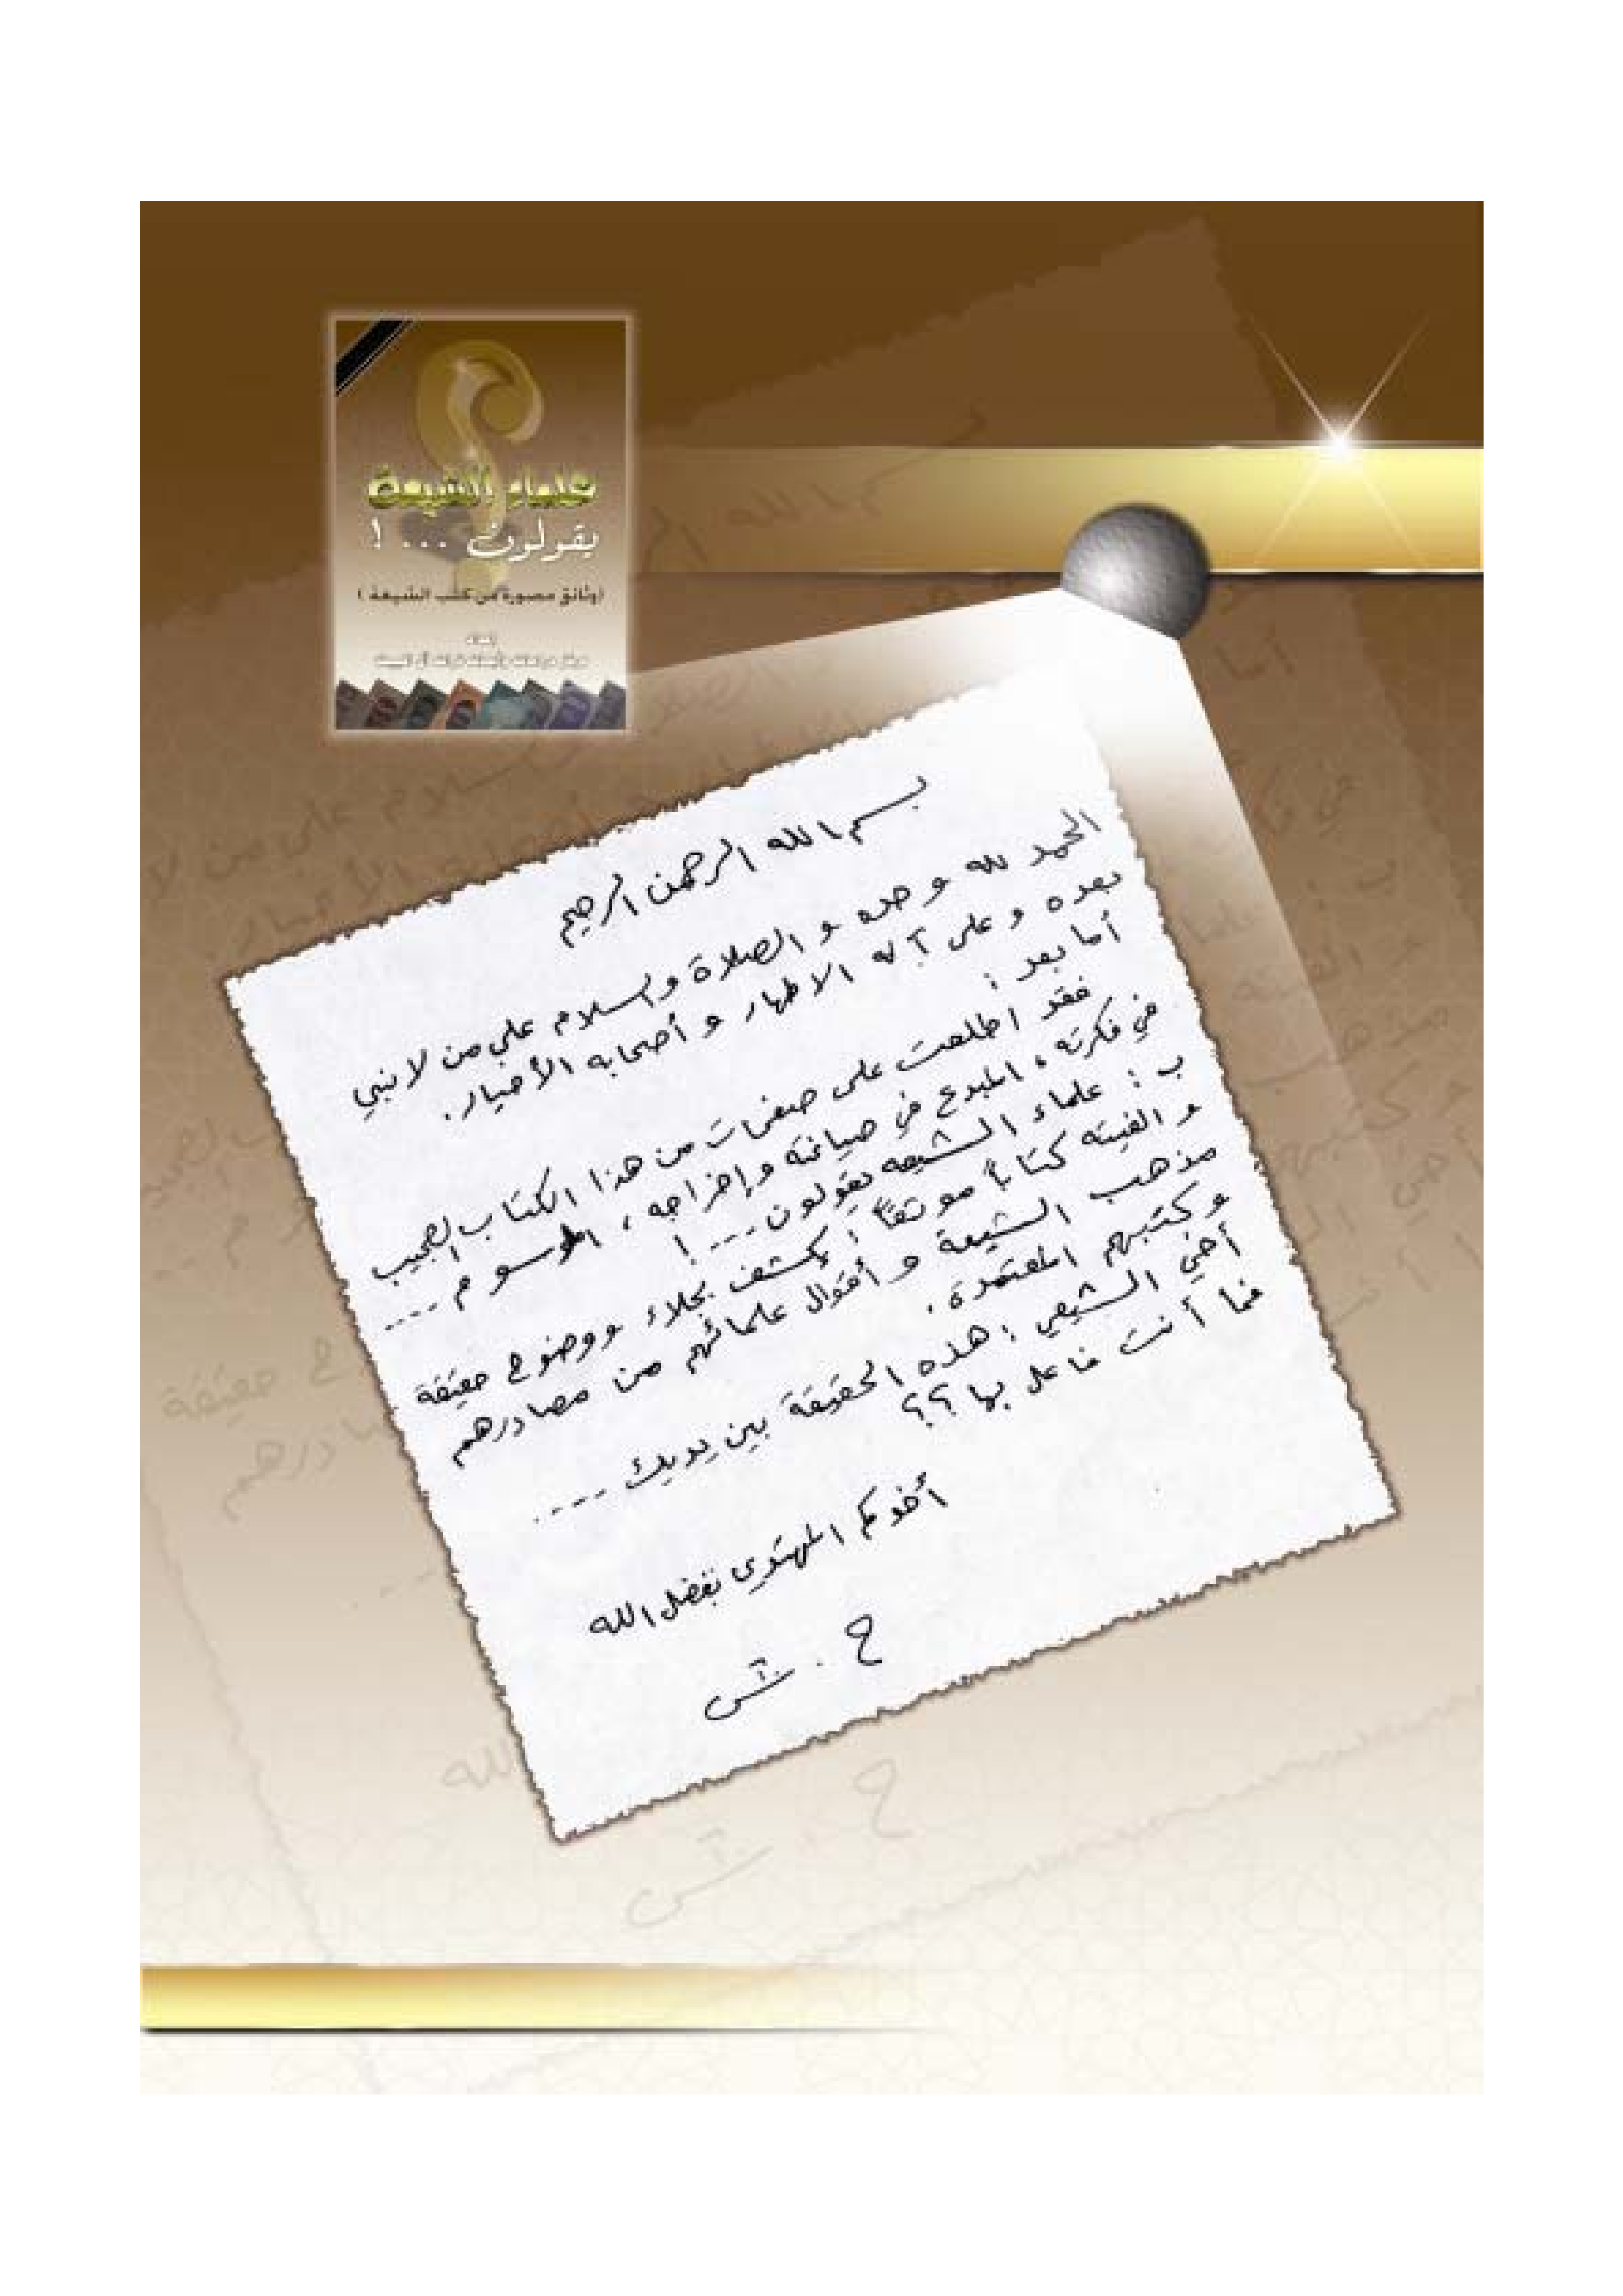 علماء الشيعة
يقولون ... !
(وثائق مصورة من كتب الشيعة)
إعداد
بسم الله الرحمن الرحيم
الحمد لله وحده و الصلاة والسلام على من لا نبي
بعده و على آله الاطهار و أصحابه الأخيار.
أما بعد :
فقد اطلعت على صفحات من هذا الكتاب العجيب
في فكرته ، المبدع في صياغته وإخراجه ، الموسوم ....
ب : علماء الشيعة يقولون ... !
و الفيته كتاباً موثقاً ! يكشف بجلاء ووضوح حقيقة
مذهب الشيعة و أقوال علمائهم من مصادرهم
و كتبهم المعتمدة .
أخي الشيعي : هذه الحقيقة بين يديك ....
فما أنت فاعل بها ؟؟
أخوكم المهتدي بفضل الله
ح . ش